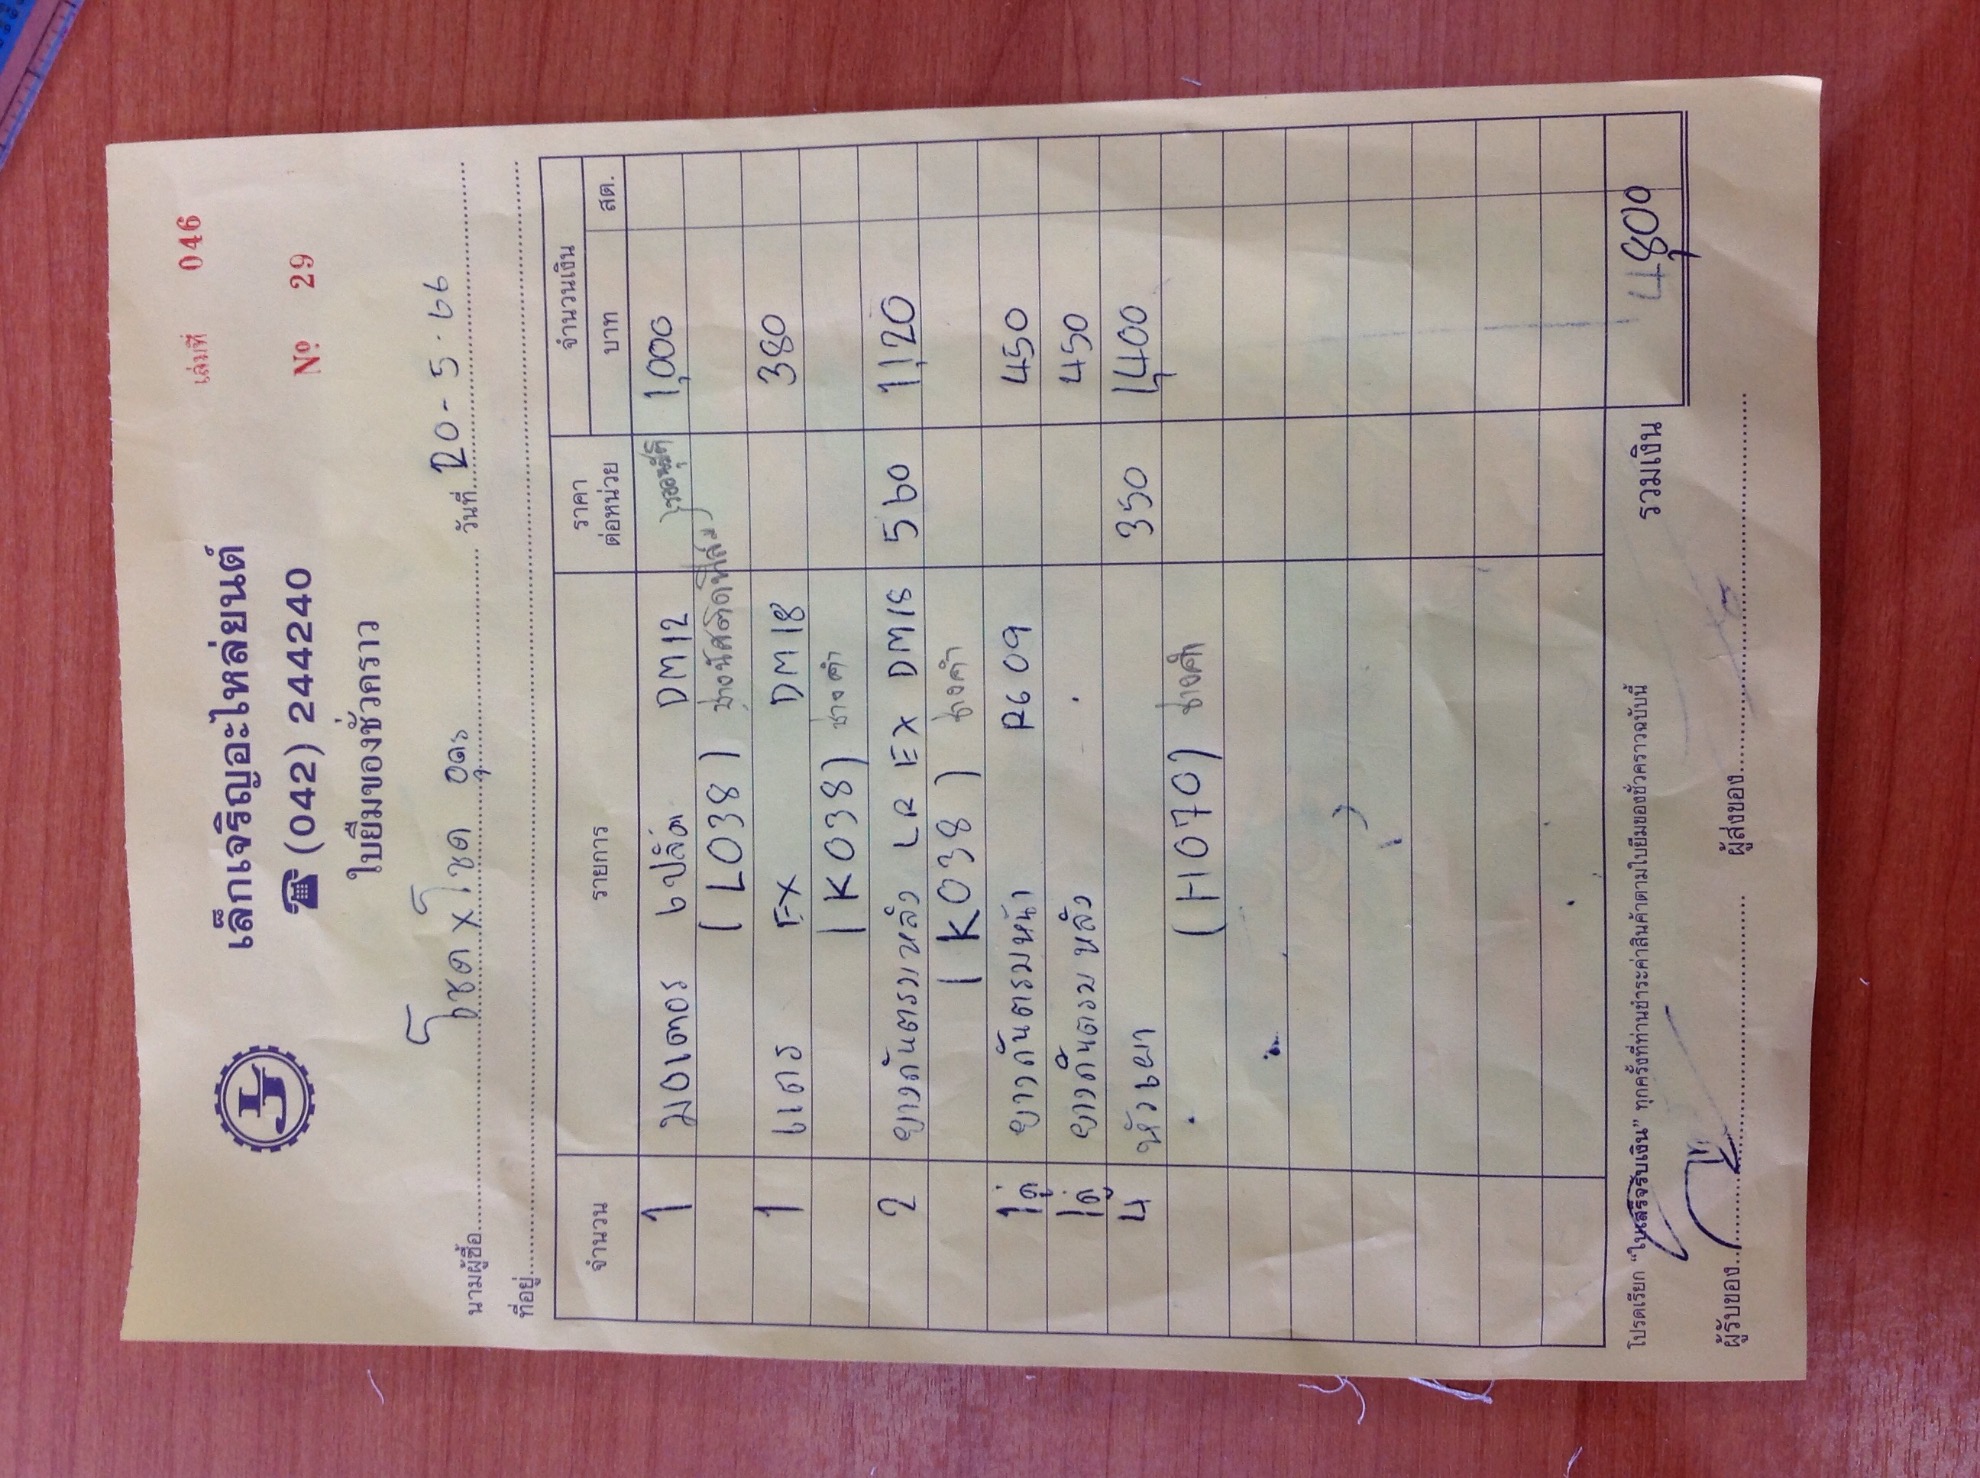 เล่มที่ 046
เล็กเจริญอะไหล่ยนต์
☎ (042) 244240
Nº 29
ใบยืมของชั่วคราว
นามผู้ซื้อ โชค x โชค อุดร วันที่ 20-5-66
ที่อยู่
จำนวน รายการ ราคาต่อหน่วย จำนวนเงิน
บาท สต.
1 มอเตอร์ DM12 1,000
(L038)
1 แตร EX DM18 380
(K038) ช่างคำ
2 ยางกันตรมหลัง LR EX DM1S 560 1,120
(K038) ช่างคำ
1คู่ ยางกันตรมหน้า R609 450
1คู่ ยางกันตรมหลัง 450
4 350 1,400
(H070) ช่างคำ
รวมเงิน 4,800
โปรดเรียก “ใบเสร็จรับเงิน” ทุกครั้งที่ท่านชำระค่าสินค้าตามใบยืมของชั่วคราวฉบับนี้
ผู้รับของ ผู้ส่งของ